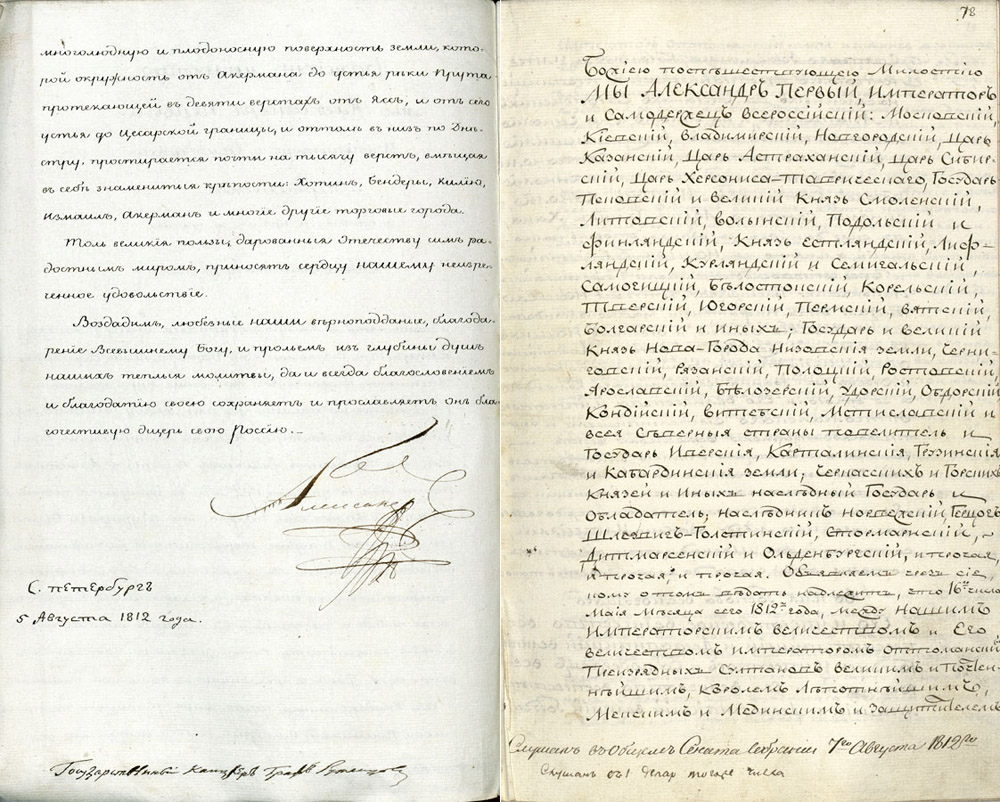 многолюдную и плодоносную поверхность земли, кото-
рой окружность отъ Акермана до устья рѣки Прута
протекающей въ девяти верстахъ отъ Яссъ, и отъ сего
устья до Цесарской границы, и оттоль въ низъ по Днѣ-
стру, простирается почти на тысячу верстъ, вмѣщая
въ себѣ знаменитыя крѣпости: Хотинъ, Бендеры, Килію,
Измаилъ, Акерманъ и многіе другіе торговые города.
Толь великія пользы, дарованныя Отечеству симъ ра-
достнымъ миромъ, приносятъ сердцу НАШЕМУ неизре-
ченное удовольствіе.
Воздадимъ, любезные НАШИ вѣрноподданые, благода-
реніе Всевышнему Богу, и прольемъ изъ глубины душъ
нашихъ теплыя молитвы, да и всегда благословеніемъ
и благодатію своею сохраняетъ и прославляетъ Онъ бла-
гочестивую дщерь свою Россію._
Александръ
С. ПЕТЕРБУРГЪ
5 Августа 1812 года.
Государственный Канцлеръ Графъ Румянцовъ
78
Божіею поспѣшествующею Милостію
МЫ АЛЕКСАНДРЪ ПЕРВЫЙ, ИМПЕРАТОРЪ
и Самодержецъ Всероссійскій: Московскій,
Кіевскій, Владимирскій, Новгородскій, Царь
Казанскій, Царь Астраханскій, Царь Сибир-
скій, Царь Херсониса-Таврическаго, Государь
Псковскій и Великій Князь Смоленскій,
Литовскій, Волынскій, Подольскій и
Финляндскій, Князь Естляндскій, Лиф-
ляндскій, Курляндскій и Семигальскій,
Самогицкій, Бѣлостокскій, Корельскій,
Тверскій, Югорскій, Пермскій, Вятскій,
Болгарскій и иныхъ; Государь и Великій
Князь Нова-Города Низовскія земли, Черни-
говскій, Рязанскій, Полоцкій, Ростовскій,
Ярославскій, Бѣлозерскій, Удорскій, Обдорскій
Кондійскій, Витебскій, Мстиславскій и
всея Сѣверныя страны повелитель и
Государь Иверскія, Карталинскія, Грузинскія
и Кабардинскія земли; Черкасскихъ и Горскихъ
Князей и иныхъ наслѣдный Государь и
Обладатель; Наслѣдникъ Норвежскій, Герцогъ
Шлезвигъ-Голстинскій, Стормарнскій,
Дитмарсенскій и Ольденбургскій, и прочая,
и прочая, и прочая. Объявляемъ чрезъ сіе,
кому о томъ вѣдать надлежитъ, что 16го числа
Маія мѣсяца сего 1812го года, между НАШИМЪ
ИМПЕРАТОРСКИМЪ ВЕЛИЧЕСТВОМЪ и Его
ВЕЛИЧЕСТВОМЪ ИМПЕРАТОРОМЪ ОТТОМАНСКИМЪ
Преизрядныхъ Султановъ Великимъ и Почтен-
нѣйшимъ, Королемъ Лѣпотнѣйшимъ,
Меккскимъ и Мединскимъ и Защитителемъ
Слушанъ въ Общемъ Сената Собраніи 7го Августа 1812го
Слушанъ въ 1 Депар тогожъ числа